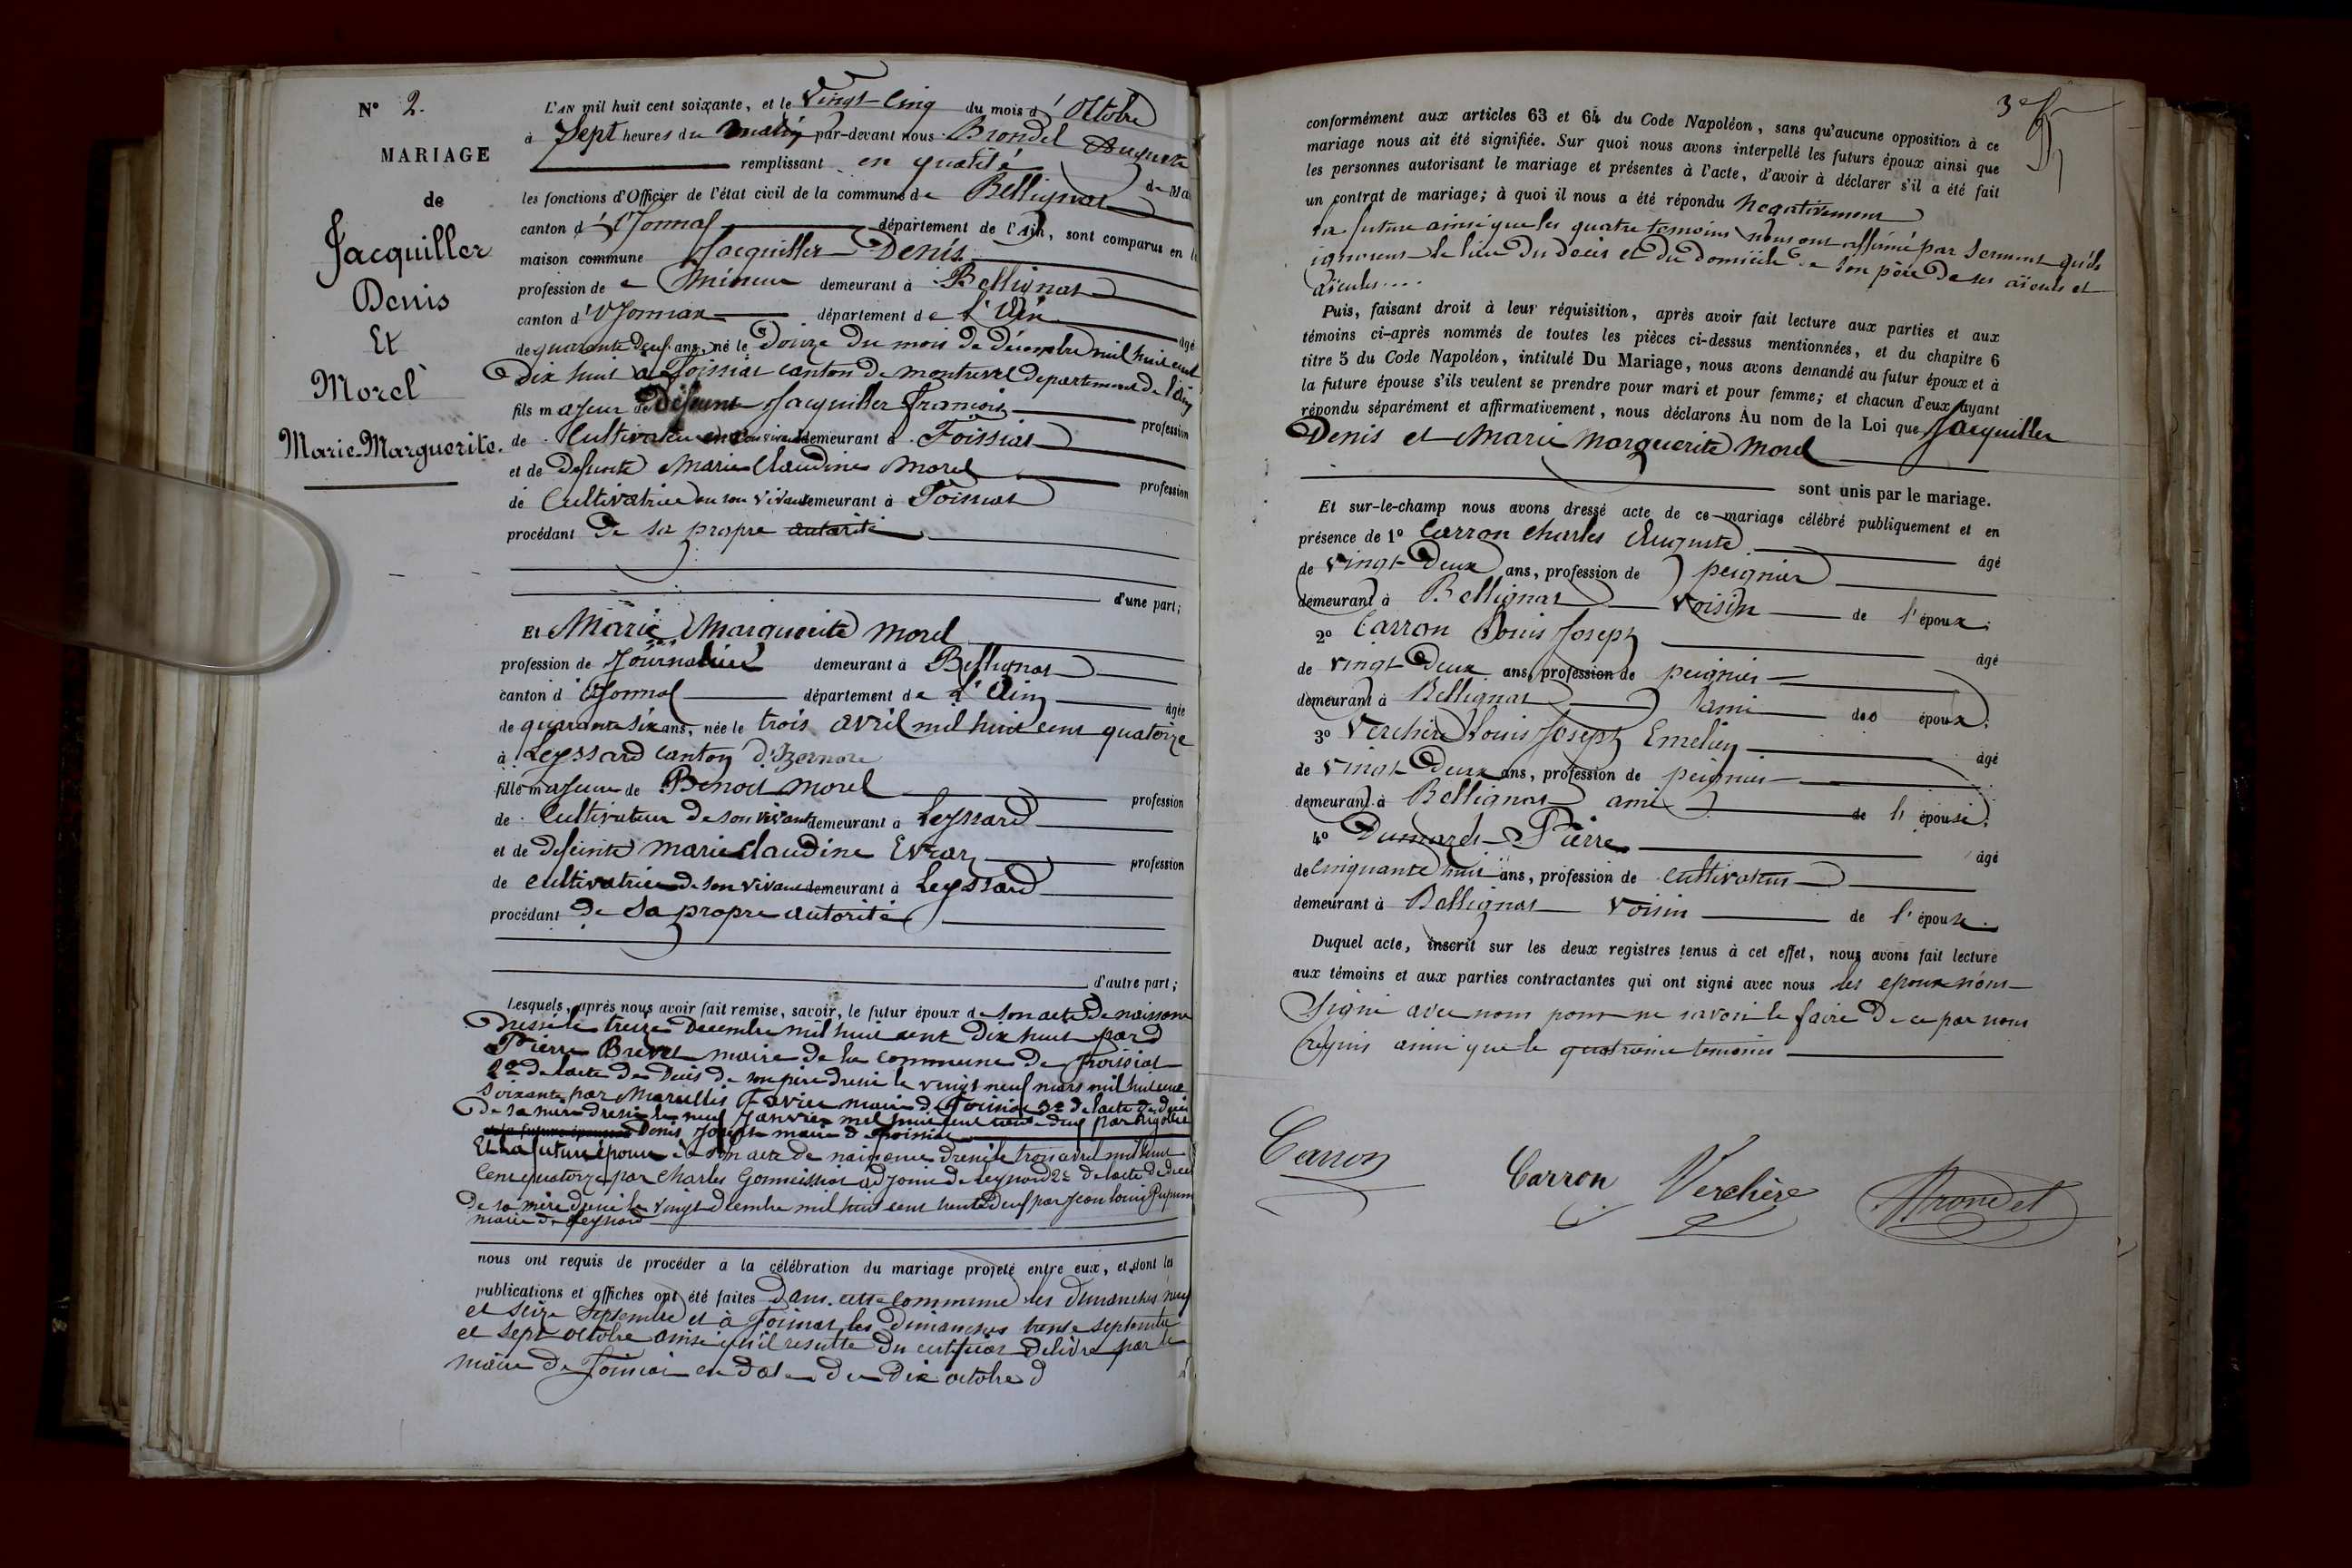 N° 2.
MARIAGE
de
Jacquiller
Denis
Et
Morel
Marie-Marguerite.
L'AN mil huit cent soixante, et le Vingt-Cinq du mois d'Octobre
à Sept heures du matin par-devant nous Brondel Auguste
remplissant en qualité de Ma
les fonctions d'Officier de l'état civil de la commune de Bellignat
canton d' département de l'Ain, sont comparus en l
maison commune Jacquiller Denis
profession de Mineur demeurant à Bellignat
canton d' département de l'Ain
âgé
de quarante deux ans, né le Douze du mois de décembre mil huit cent
Dix huit à Foissiat canton de montrevel departement de l'ain
fils majeur de Défunt Jacquiller françois
profession
de Cultivateur en son vivant demeurant à Foissiat
et de Defunte Marie Claudine Morel
profession
de Cultivatrice en son vivant demeurant à Foissiat
procédant De sa propre autorité
d'une part;
Et Marie Marguerite Morel
profession de Journalière demeurant à Bellignat
canton d' département de l'Ain
âgée
de quarante six ans, née le trois avril mil huit cent quatorze
à Leyssard canton d'Izernore
fille majeure de Benoit Morel
profession
de Cultivateur de son vivant demeurant à Leyssard
et de defeinte marie Claudine Evrar
profession
de cultivatrice de son vivant demeurant à Leyssard
procédant de sa propre autorité
d'autre part;
Lesquels, après nous avoir fait remise, savoir, le futur époux de son acte de naissance
Dressé le treize Decembre mil huit cent Dix huit par
Pierre Brevet maire de la commune de Foissiat
2° de l'acte de Deces de son père dressé le vingt neuf mars mil huit cent
soixante par maire de Foissiat 3° de l'acte de deces
de sa mère dressé le neuf Janvier mil huit cent trente deux par
Denis Joseph maire de Foissiat
Et la future épouse son acte de naissance dressé le trois avril mil huit
Cent quatorze par Charles adjoint de Leyssard 2° de l'acte de deces
de sa mère dressé le vingt Decembre mil huit cent trente Deux par Jean Louis
maire de Leyssard
nous ont requis de procéder à la célébration du mariage projeté entre eux, et dont les
publications et affiches ont été faites Dans cette Commune les dimanches neuf
et seize Septembre et à Foissiat les dimanches trente septembre
et sept octobre ainsi qu'il resulte du certificat délivré par le
maire de Foissiat en date du Dix octobre
3e
conformément aux articles 63 et 64 du Code Napoléon, sans qu'aucune opposition à ce
mariage nous ait été signifiée. Sur quoi nous avons interpellé les futurs époux ainsi que
les personnes autorisant le mariage et présentes à l'acte, d'avoir à déclarer s'il a été fait
un contrat de mariage; à quoi il nous a été répondu Negativement
la future ainsi que les quatre temoins nous ont affirmé par serment qu'ils
ignorent le lieu du deces et du domicile de son père de ses aieuls et
aïeules....
Puis, faisant droit à leur réquisition, après avoir fait lecture aux parties et aux
témoins ci-après nommés de toutes les pièces ci-dessus mentionnées, et du chapitre 6
titre 5 du Code Napoléon, intitulé Du Mariage, nous avons demandé au futur époux et à
la future épouse s'ils veulent se prendre pour mari et pour femme; et chacun d'eux ayant
répondu séparément et affirmativement, nous déclarons Au nom de la Loi que Jacquiller
Denis et Marie Marguerite Morel
sont unis par le mariage.
Et sur-le-champ nous avons dressé acte de ce mariage célébré publiquement et en
présence de 1° Carron Charles Auguste
âgé
de Vingt Deux ans, profession de peignier
demeurant à Bellignat Voisin de l'époux;
2° Carron Louis Joseph
âgé
de vingt Deux ans, profession de peignier
demeurant à Bellignat ami des époux;
3° Verchère Louis Joseph Emelien
âgé
de Vingt Deux ans, profession de peignier
demeurant à Bellignat ami de l'épouse;
4° Dumarest Pierre
âgé
de Cinquante huit ans, profession de cultivateur
demeurant à Bellignat Voisin de l'épouse.
Duquel acte, inscrit sur les deux registres tenus à cet effet, nous avons fait lecture
aux témoins et aux parties contractantes qui ont signé avec nous les epoux n'ont
Signé avec nous pour ne savoir le faire De ce par nous
requis ainsi que le quatrieme temoin
Carron
Carron
Verchère
Brondel